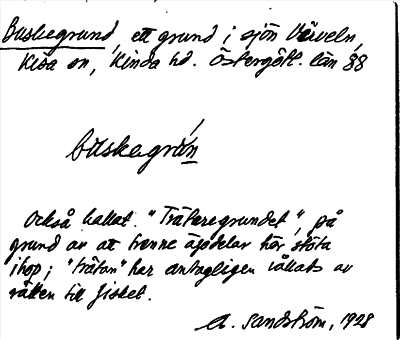 Buskegrund, ett grund i sjön Väveln,
Kisa sn, Kinda hd. Östergötl. län 88
buskegrún
Också kallat "Träteregrundet", på
grund av att trenne ägodelar här stöta
ihop; "trätan" har antagligen vållats av
rätten till fisket.
A. Sandström, 1928